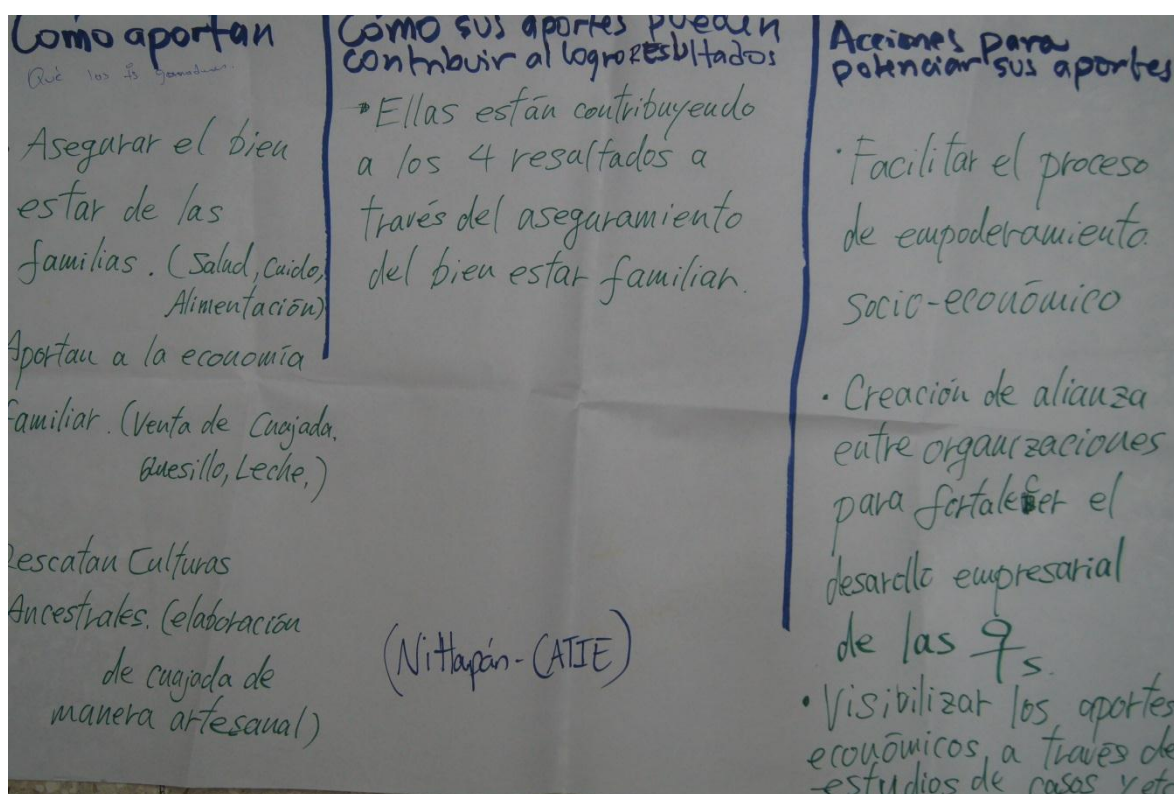 Como aportan
Qué las
• Asegurar el bien
estar de las
familias. (Salud, Cuido,
Alimentación)
Aportan a la economía
familiar. (Venta de Cuajada,
Quesillo, Leche,)
Rescatan Culturas
Ancestrales. (elaboración
de cuajada de
manera artesanal)
Cómo sus aportes pueden
contribuir al logro resultados
• Ellas están contribuyendo
a los 4 resaltados a
través del aseguramiento
del bien estar familiar.
(Nitlapán-CATIE)
Acciones para
potenciar sus aportes
• Facilitar el proceso
de empoderamiento
socio-económico
• Creación de alianza
entre organizaciones
para fortalecer el
desarollo empresarial
de las ♀s.
• Visibilizar los aportes
económicos, a través de
estudios de casos y etc